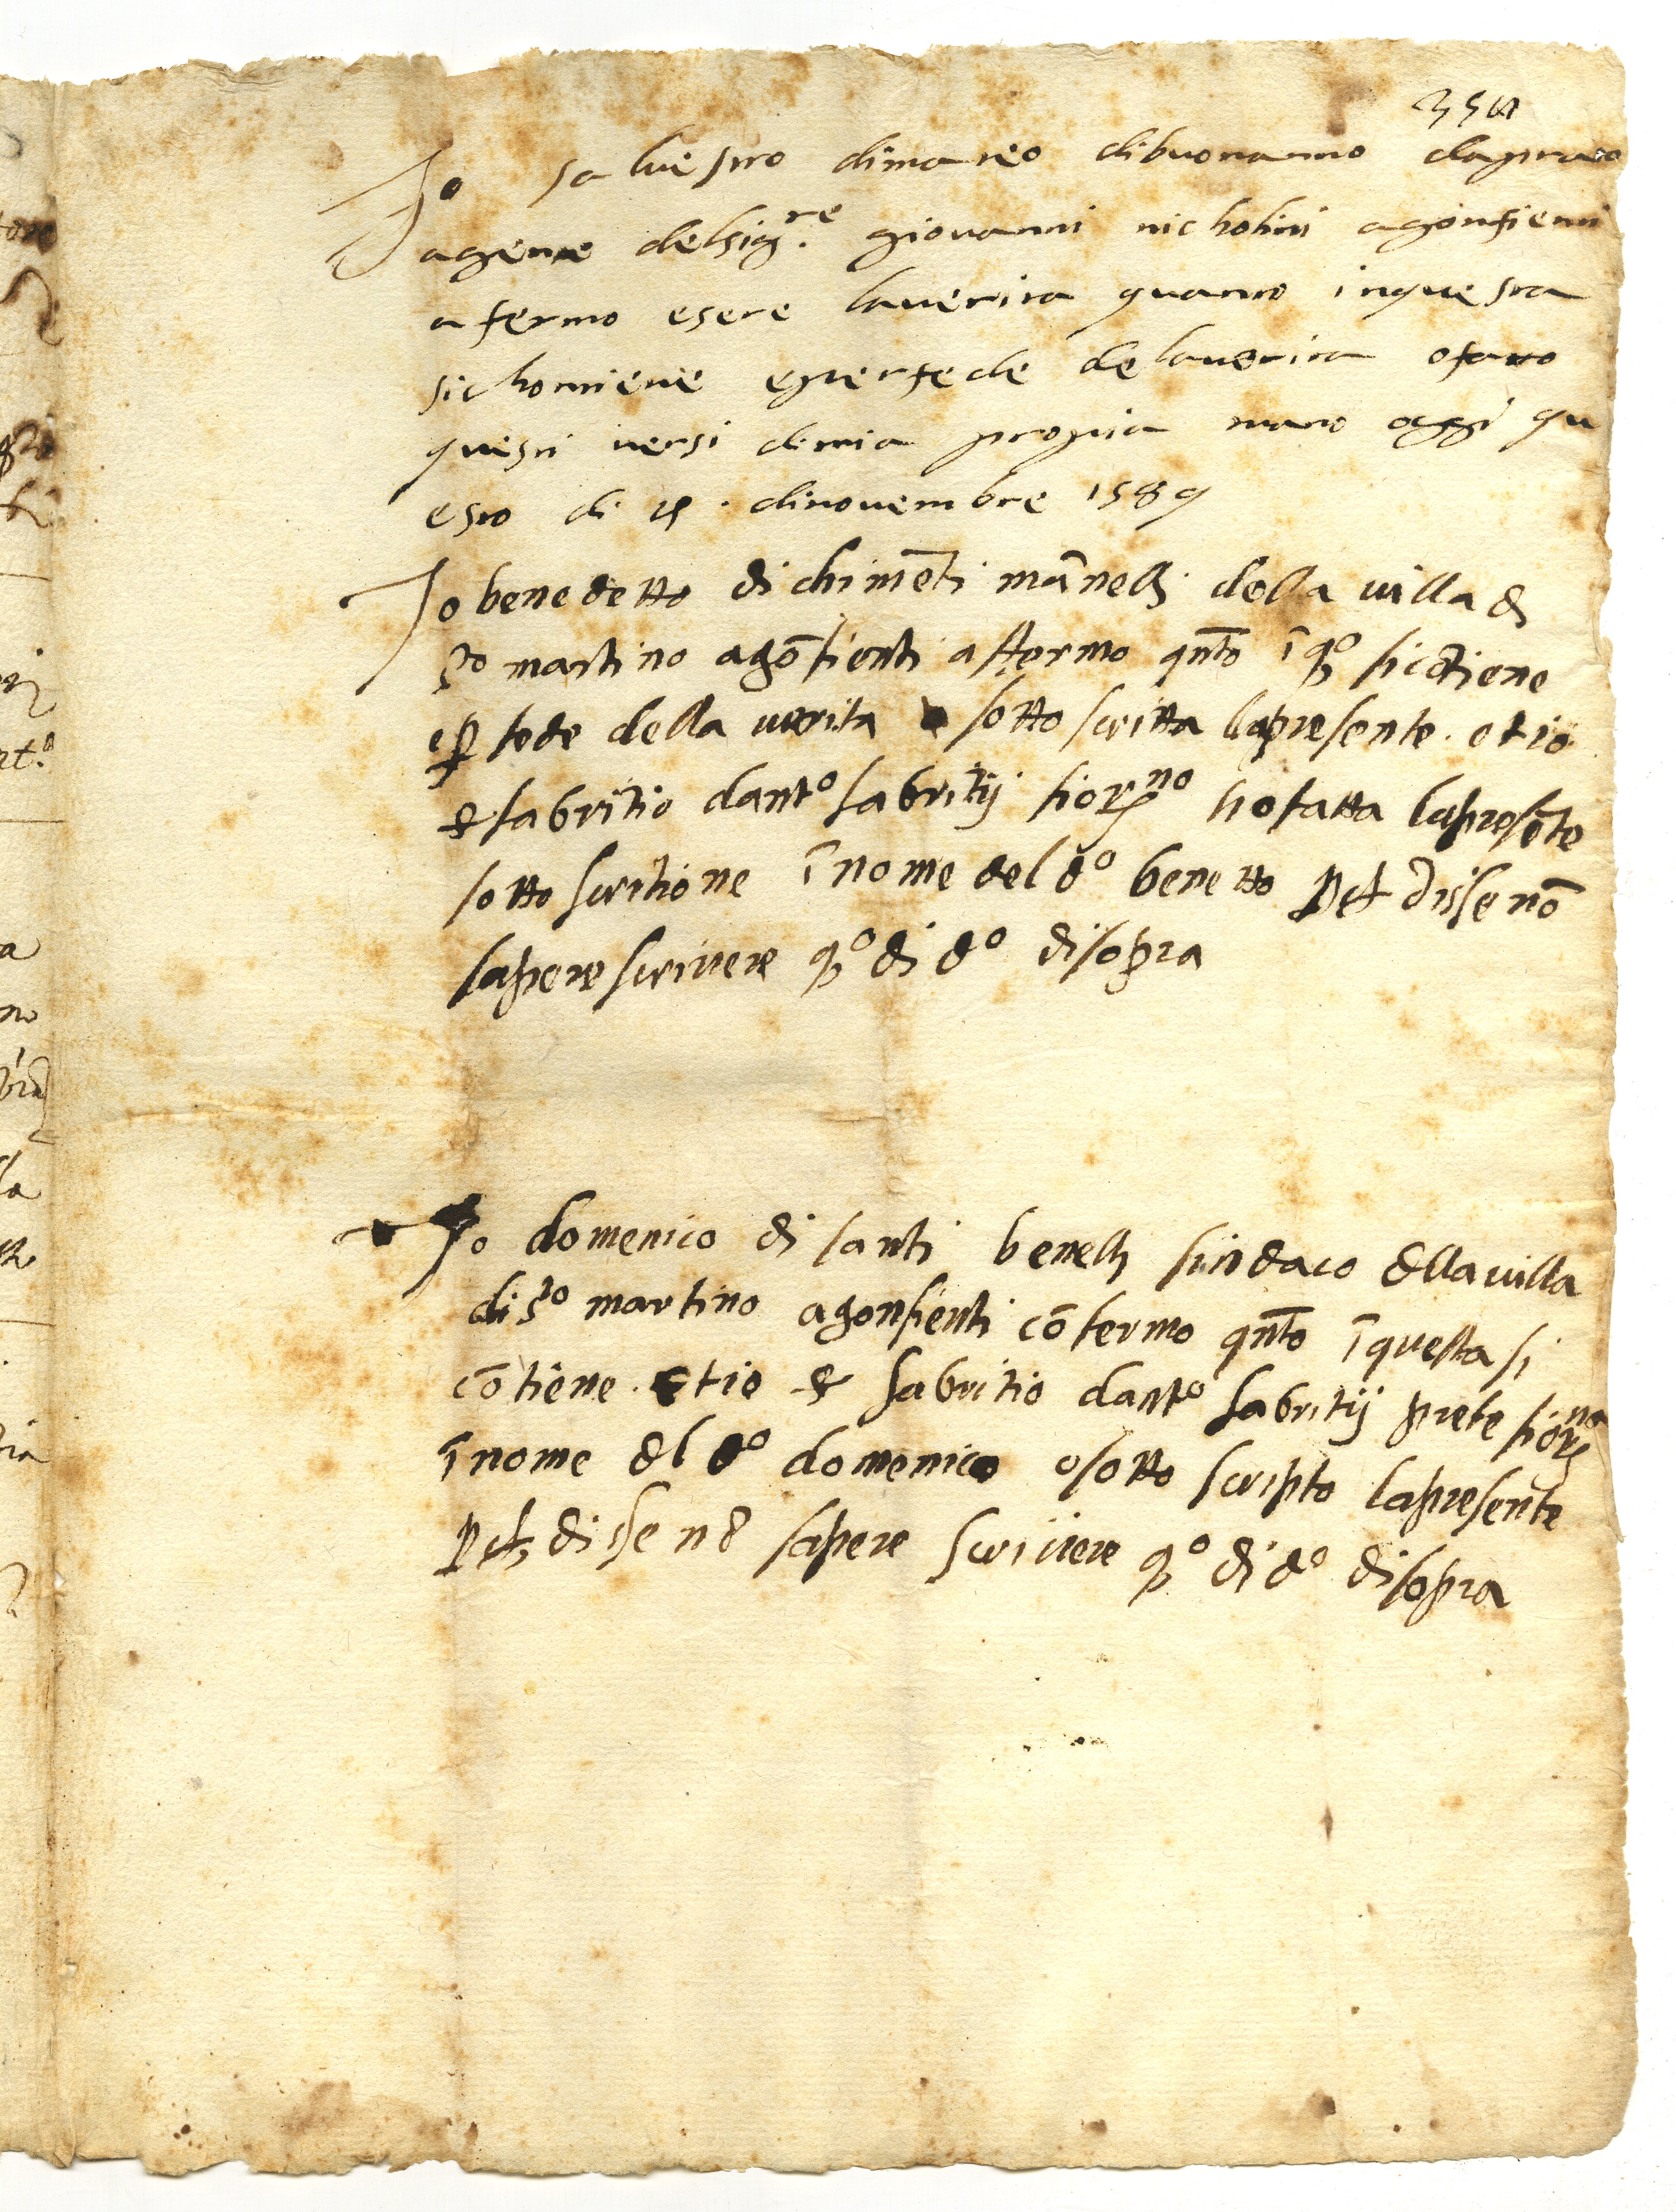 354
Jo saluestro dimateo dibuonanno daprato
agente delsig.re giouanni nicholini agonfienti
afermo esere lauerita quanto inquesta
sichontiene eperfede delauerita ofatto
questi uersi dimia propria mano oggi qu
esto di dinouembre 1589
Jo benedetto di chimēti mānelli della uilla di
sto martino agōfienti affermo qnto ī qo sicōtiene
e p fede della uerita o sotto scritta lapresente. et io
fabritio danto fabritij fiorno ho fatta lapresēte
sotto scritione ī nome del do benetto disse nō
sapere scriuere qo di do disopra
Jo domenico di santi benelli sindaco della uilla
di sto martino agonfienti cōfermo qnto ī questa si
cōtiene. et io fabritio danto fabritij prete fiorno
ī nome del do domenico o sotto scripto lapresente
disse nō sapere scriuere qo di do disopra